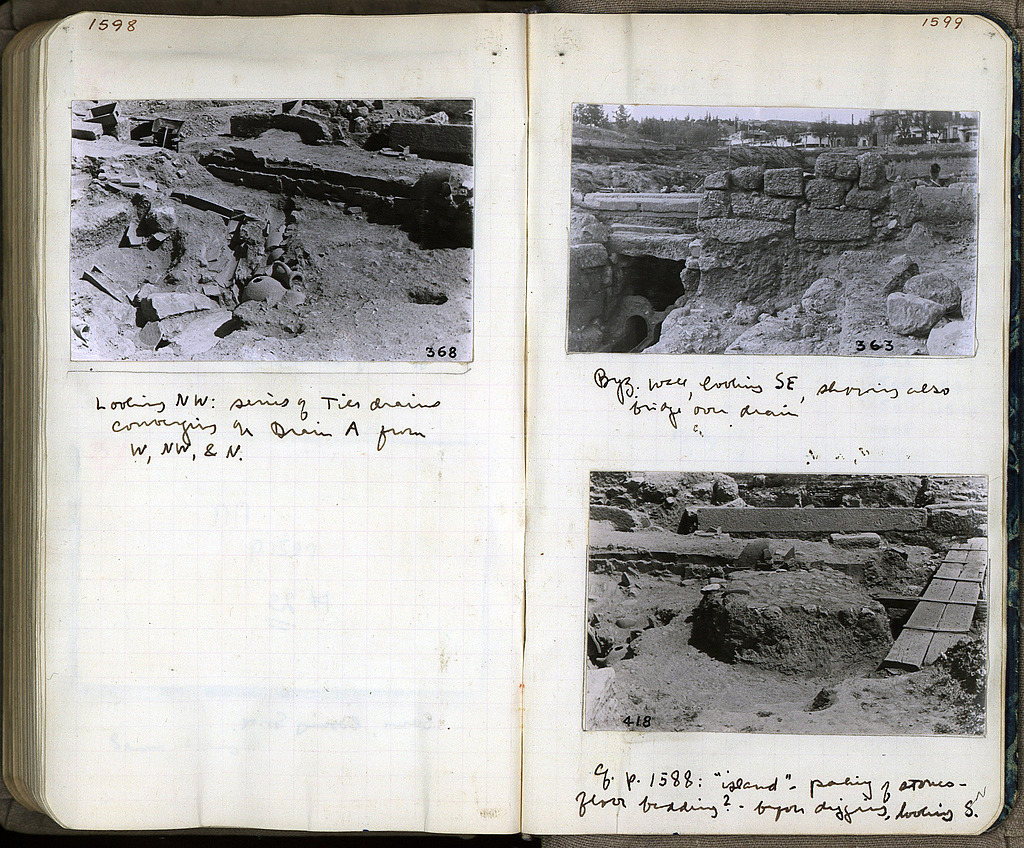 1598
368
Looking NW: series of Tiles drains
converging on Drain A from
W, NW, & N.
1599
363
Byz. wall, looking SE, showing also
bridge over drain
418
cf. p. 1588: "island" - packing of stones -
floor bedding? - before digging, looking S.